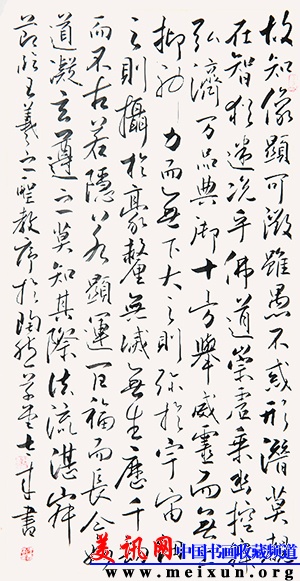 故知像顯可徵雖愚不惑形潛莫覩
在智猶迷況乎佛道崇虛乘幽控寂
弘濟万品典御十方舉威靈而無上
抑神力而無下大之則彌於宇宙細
之則攝於豪釐無滅無生歷千劫
而不古若隱若顯運百福而長今妙
道凝玄遵之莫知其際法流湛寂
節臨王羲之聖教序於陶然
美讯网 中国书画收藏频道
www.meixun.org